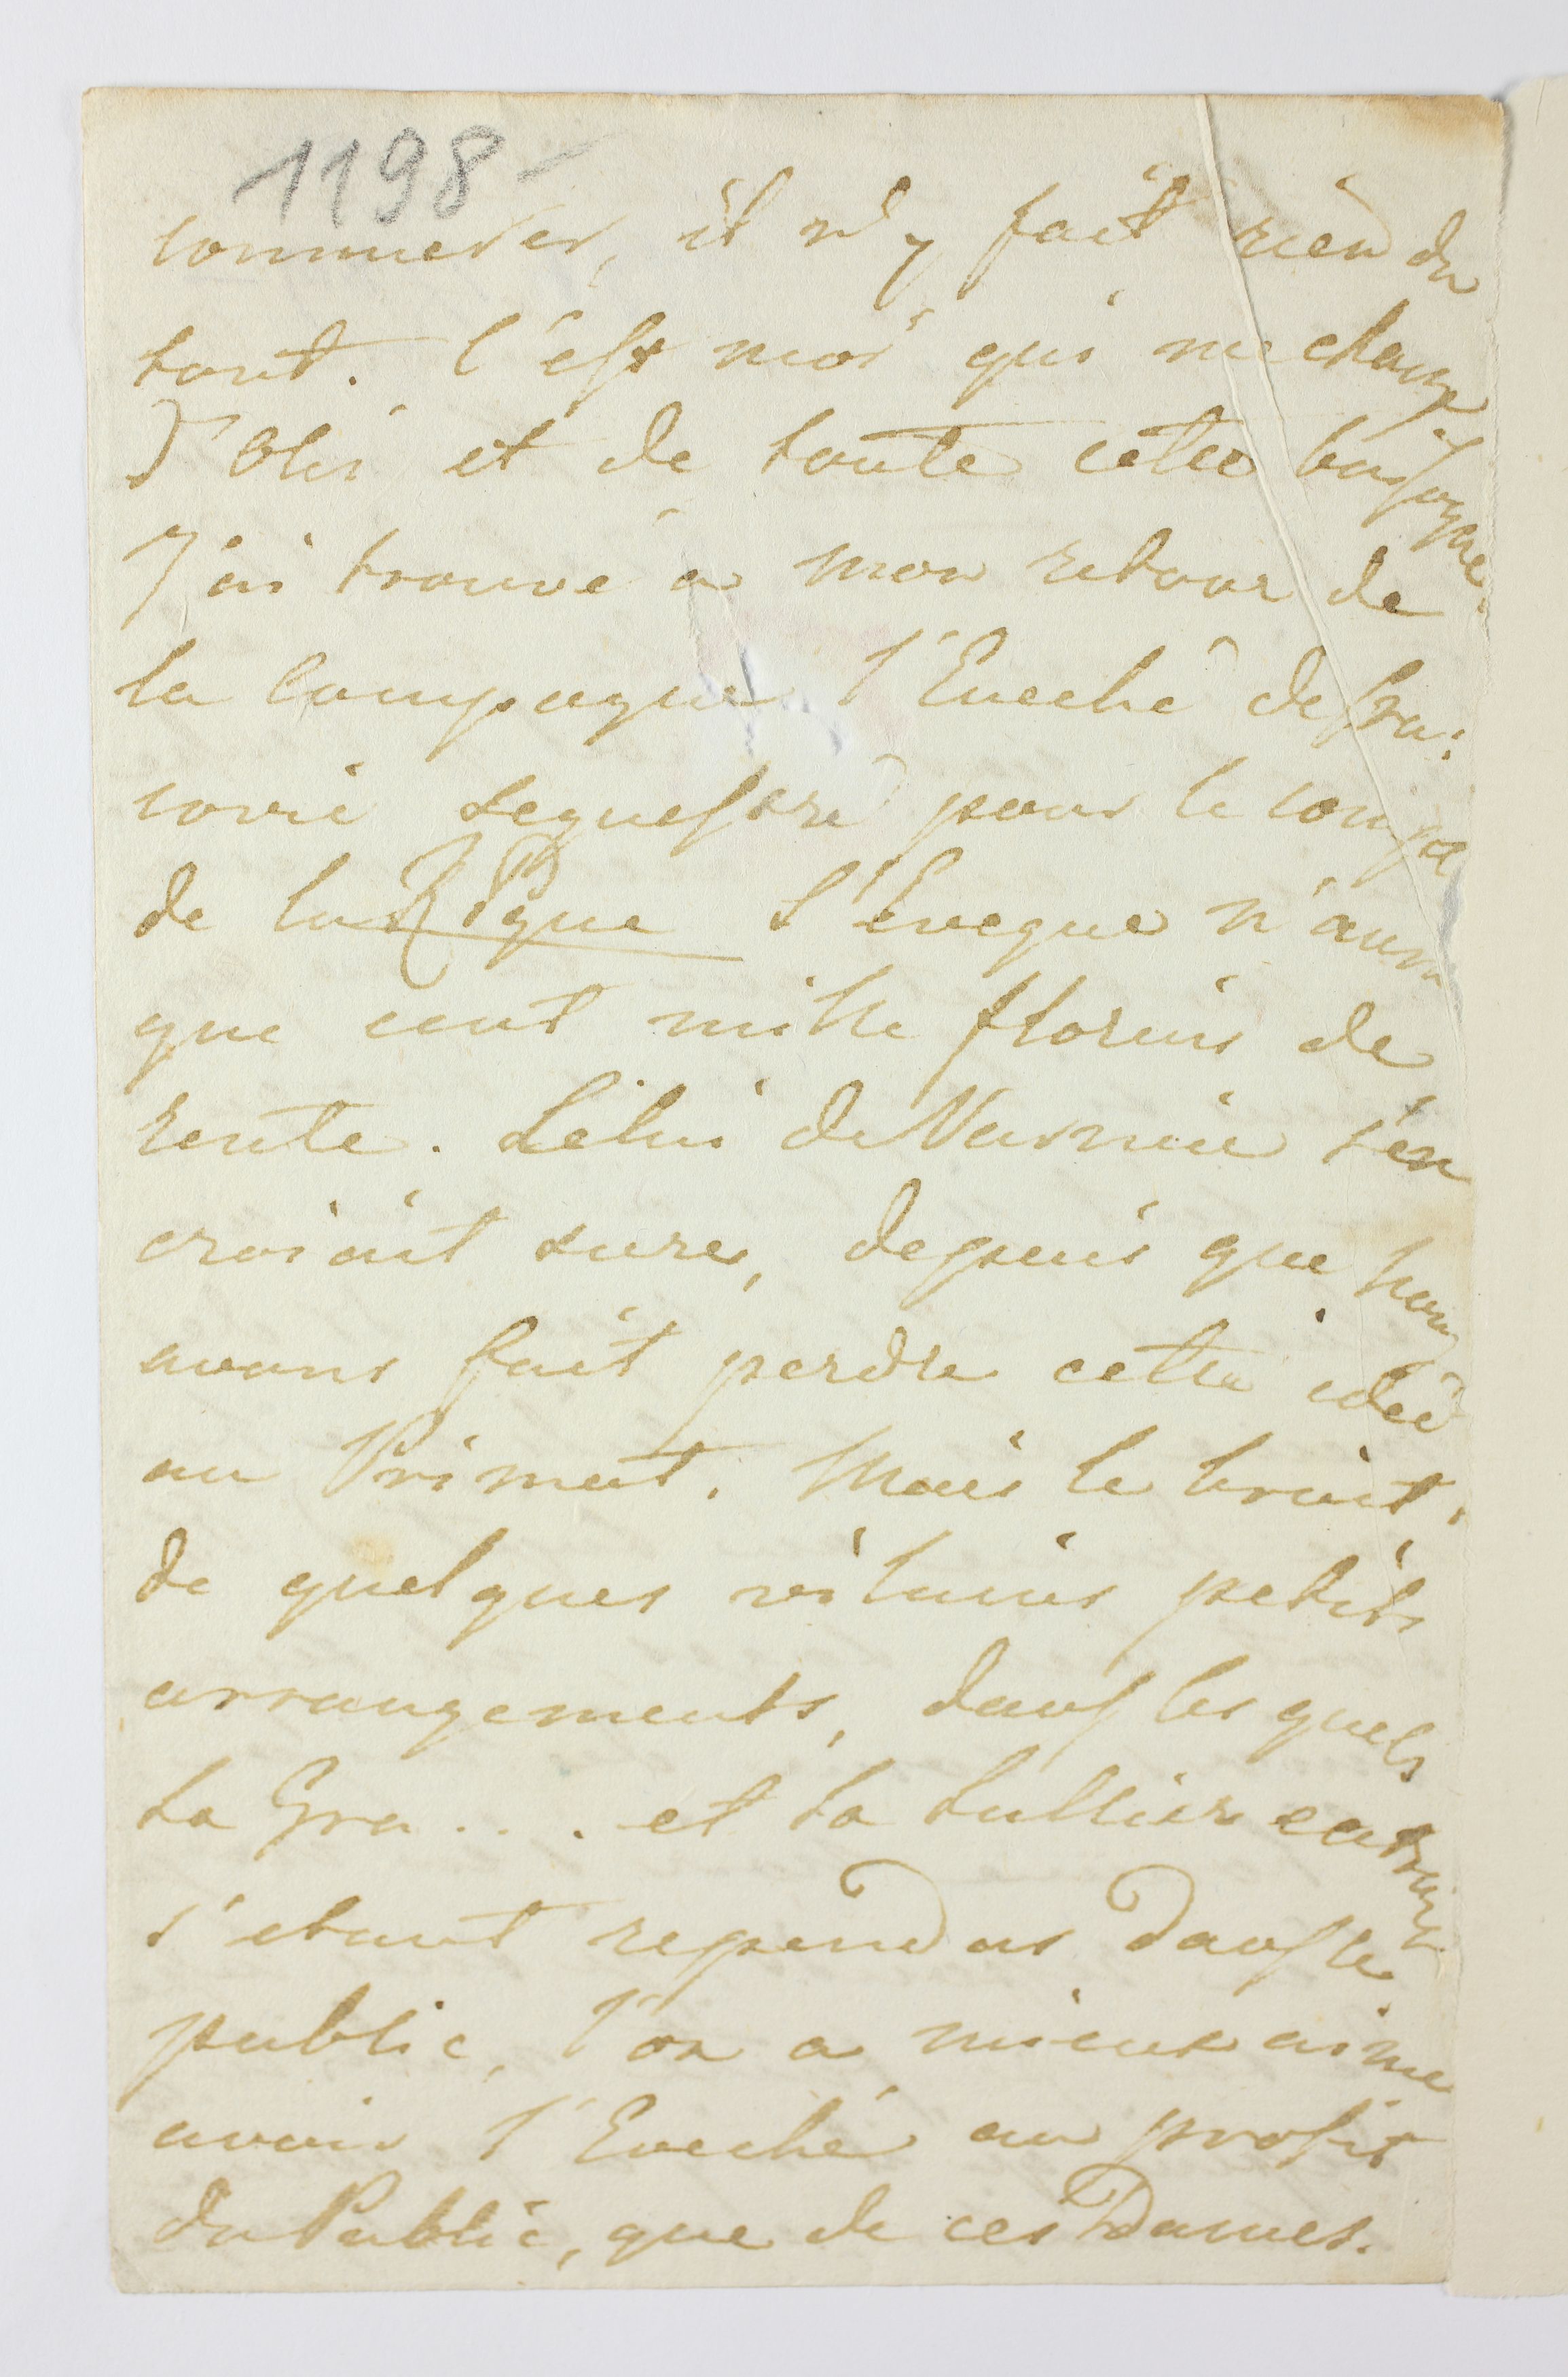 1198-
connuever, il n'y fait rien du
tout. C'est moi qui me charge
d'Olis et de toute cette besogne.
J'ai trouvé a mon retour de
la Campagne l'Eveché de Cra:
covie sequestré pour le compte
de la Rpque L'Eveque n'aura
que cent mille florins de
rente. Celui de Varmie s'en
croiait sure, depuis que nous
avons fait perdre cette idée
au Primat. Mais le bruit,
de quelques vilains petits
arrangements, dans les quels
la Gra . . . . et la entrant
s'etant rependus dans le
public, l'on a mieux aime
avoir l'Eveché au profit
du Public, que de ces Dames.